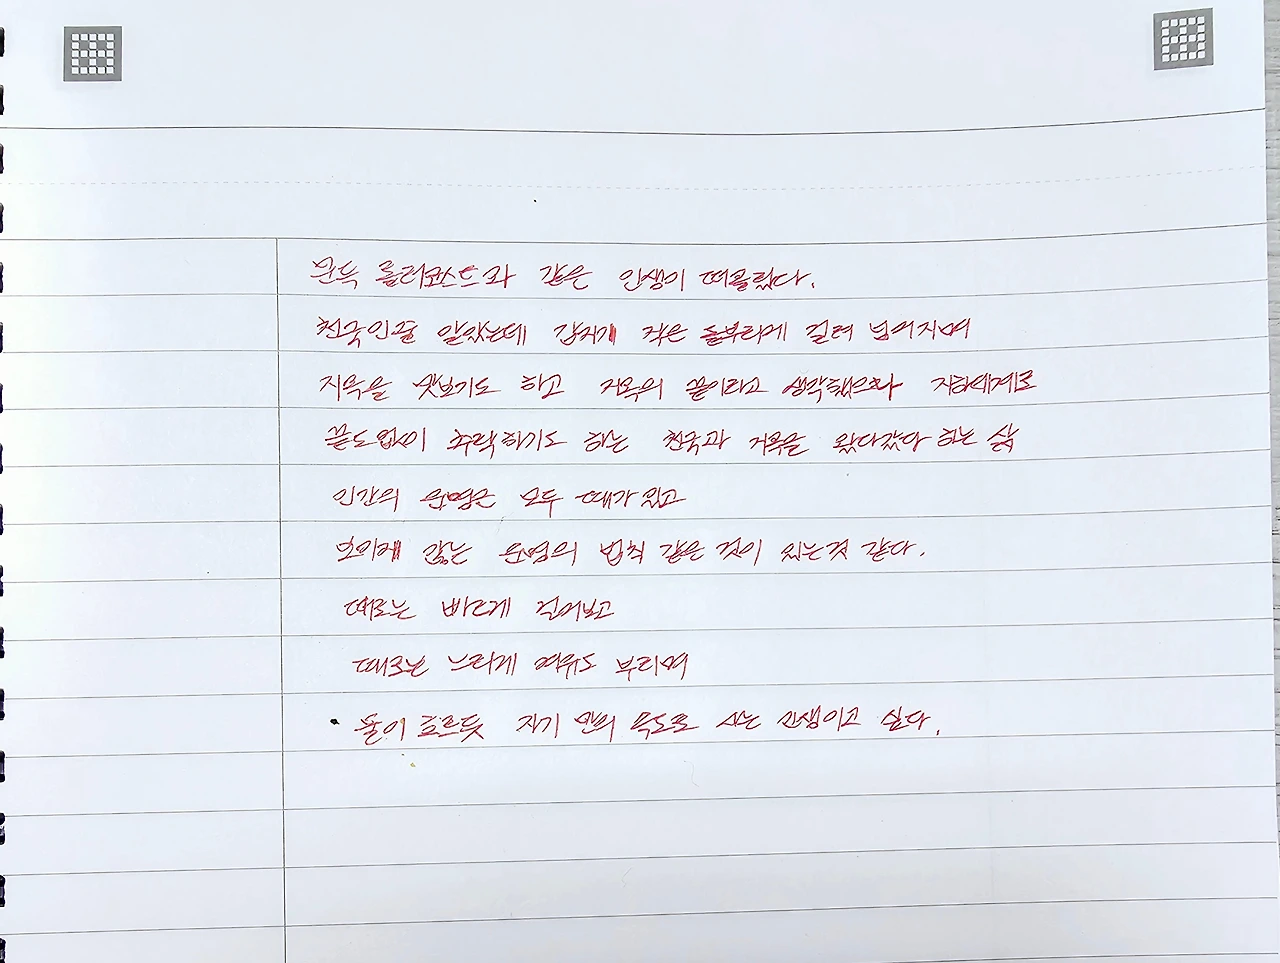 문득 롤러코스트와 같은 인생이 떠올랐다.
천국인줄 알았는데 갑자기 작은 돌부리에 걸려 넘어지며
지옥을 맛보기도 하고 지옥의 끝이라고 생각했으나 지하세계로
끝도없이 추락하기도 하는 천국과 지옥을 왔다갔다 하는 삶
인간의 운명은 모두 때가 있고
보이지 않는 운명의 법칙 같은 것이 있는것 같다.
때로는 빠르게 걸어보고
때로는 느리게 여유도 부리며
물이 흐르듯 자기 만의 속도로 사는 인생이고 싶다.